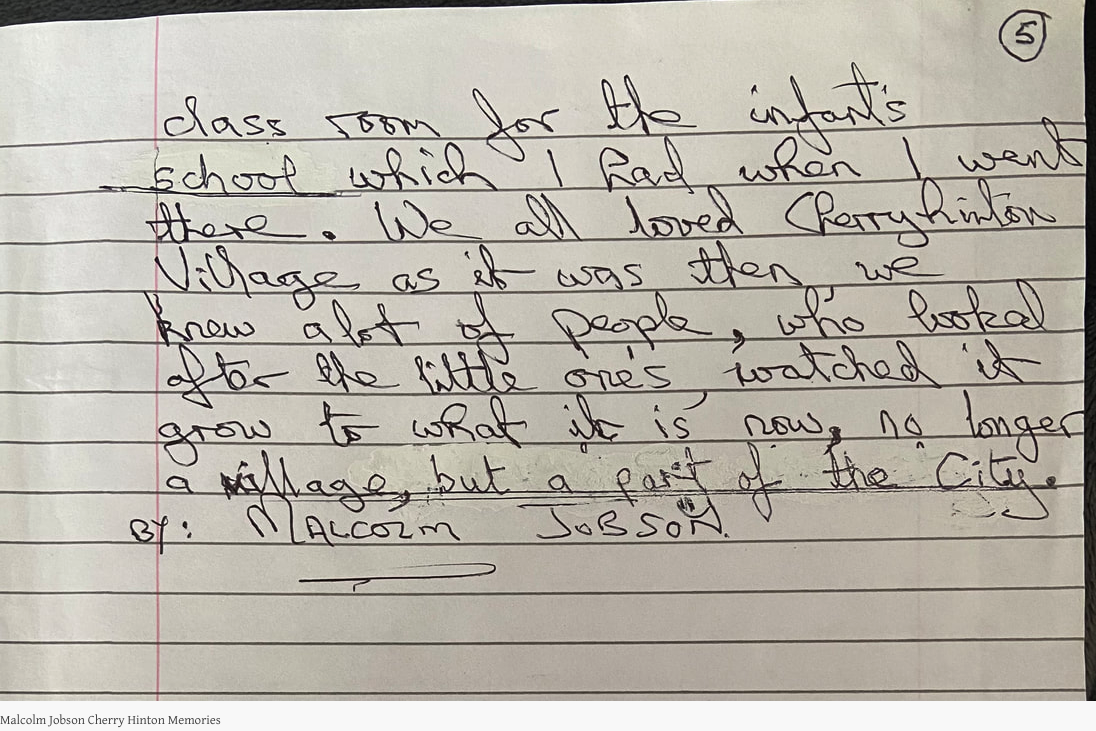 5
class room for the infant's
school which I had when I went
there. We all loved Cherryhinton
Village as it was then, we
knew alot of people, who looked
after the little one's, watched it
grow to what it is now, no longer
a village, but a part of the City.
BY: MALCOLM JOBSON.
Malcolm Jobson Cherry Hinton Memories